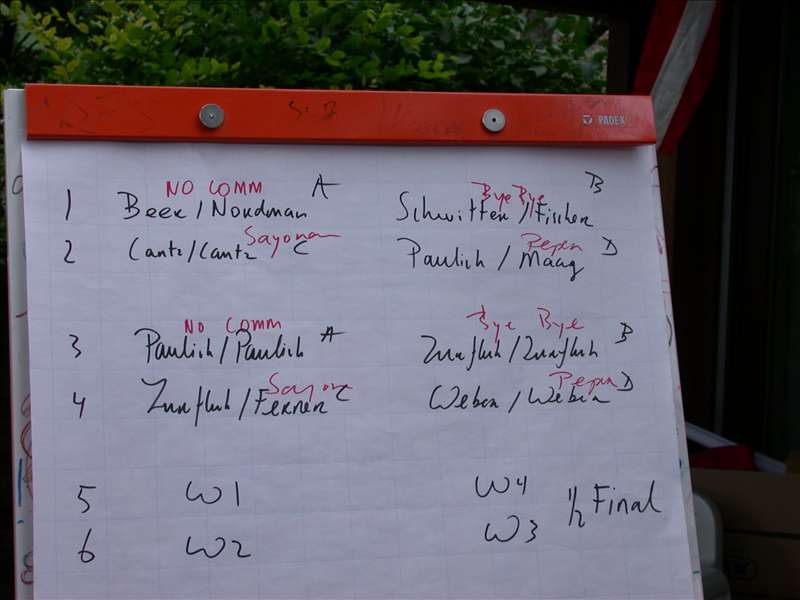 PADEX
NO COMM A Bye Bye B
1 Beer/Nordman Schwitter/Fischer
Sayonan Pepin
2 Cantz/Cantz C Paulich/Maag D
NO COMM Bye Bye
3 Paulich/Paulich A Zurfluh/Zurfluh B
Sayona Pepin
4 Zurfluh/Ferrer C Weber/Weber D
5 W1 W4 1/2 Final
6 W2 W3